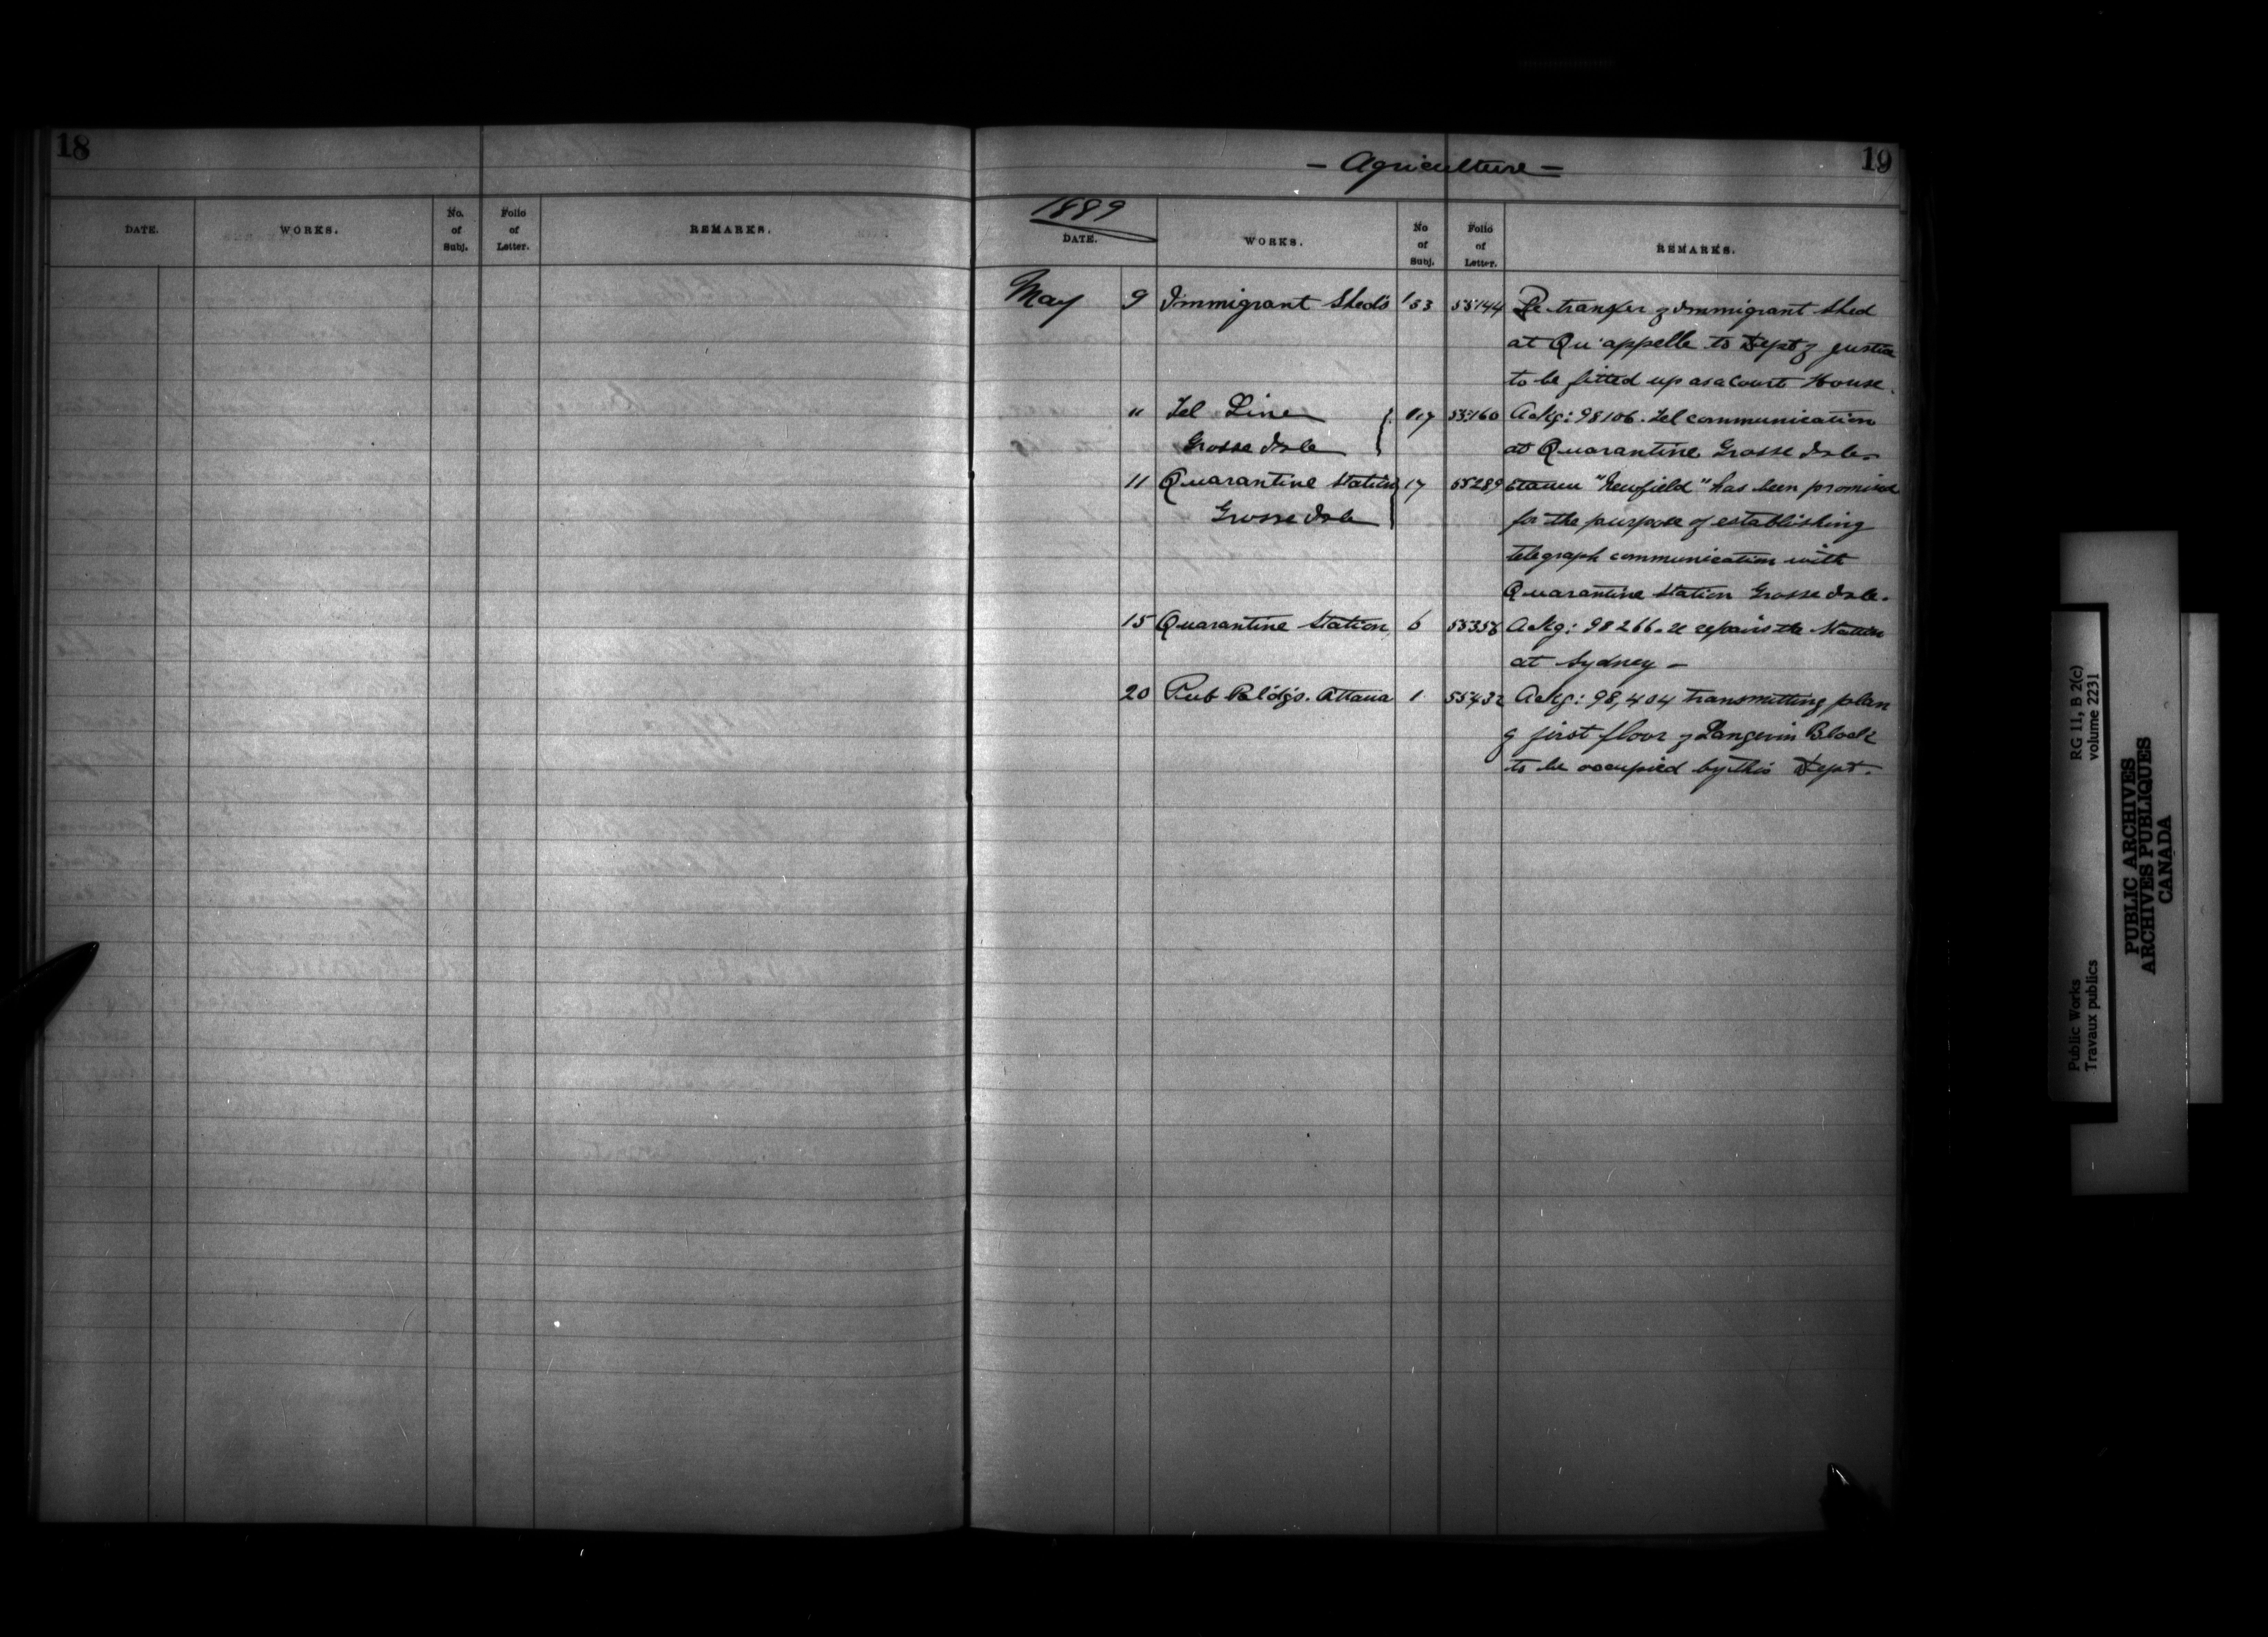 18
DATE. WORKS. No. of Subj. Folio of Letter. REMARKS.
19
- Agriculture -
1889
DATE. WORKS. No of Subj. Folio of Letter. REMARKS.
May 9 Immigrant Sheds 153 55144 Re transfer of Immigrant Shed
at Qu'appelle to Dept of Justice
to be fitted up as a Court House.
" Tel Line 117 55160 Ackg: 98106. Tel communication
Grosse Isle at Quarantine Grosse Isle.
11 Quarantine Station 17 55289 Steamer "Newfield" has been promised
Grosse Isle for the purpose of establishing
telegraph communication with
Quarantine Station Grosse Isle.
15 Quarantine Station 6 55358 Ackg: 98266. re repairs the Station
at Sydney -
20 Pub Bldgs. Ottawa 1 55432 Ackg: 98,404 transmitting plan
of first floor of Langevin Block
to be occupied by this Dept.
Public Works RG 11, B 2(c)
Travaux publics volume 2231
PUBLIC ARCHIVES
ARCHIVES PUBLIQUES
CANADA